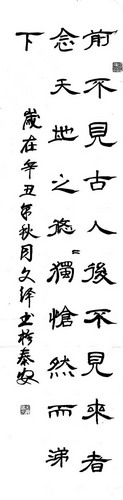 前不見古人後不見來者
念天地之悠〻獨愴然而涕
下
歲在辛丑年秋月文泽书於泰安